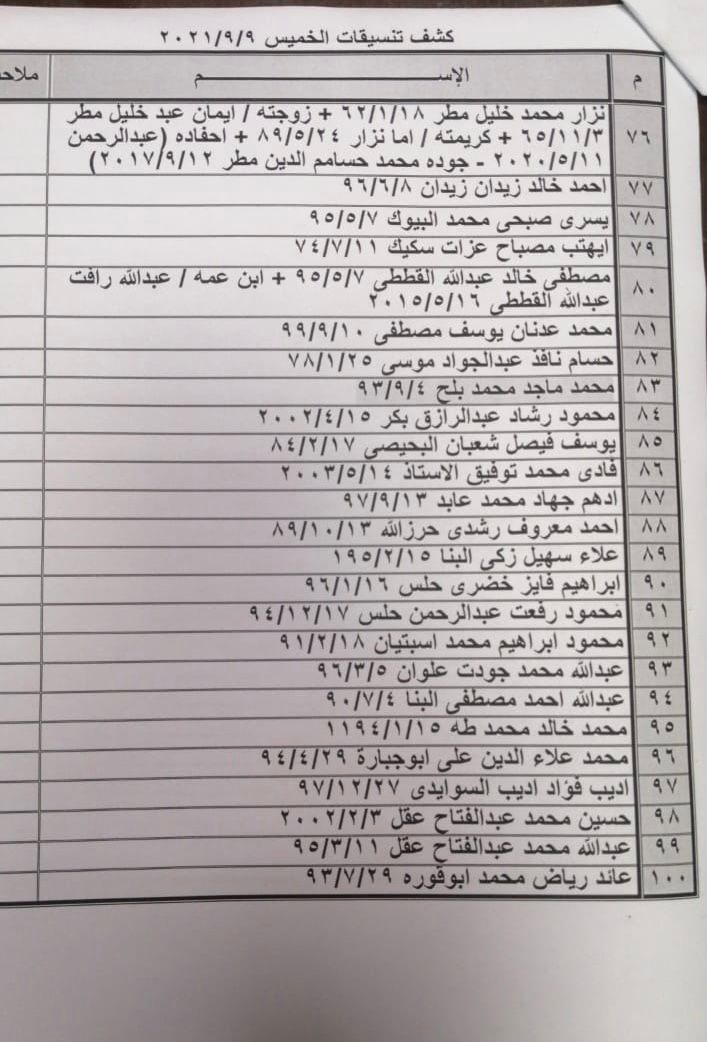 كشف تنسيقات الخميس ٢٠٢١/٩/٩
م الإســـــــــــــــــم ملاح
٧٦ نزار محمد خليل مطر ٦٢/١/١٨ + زوجته / ايمان عبد خليل مطر
٦٥/١١/٣ + كريمته / اما نزار ٨٩/٥/٢٤ + احفاده (عبدالرحمن
٢٠٢٠/٥/١١ - جوده محمد حسامم الدين مطر ٢٠١٧/٩/١٢)
٧٧ احمد خالد زيدان زيدان ٩٦/٦/٨
٧٨ يسرى صبحى محمد البيوك ٩٥/٥/٧
٧٩ ايهتب مصباح عزات سكيك ٧٤/٧/١١
٨٠ مصطفى خالد عبدالله القططى ٩٥/٥/٧ + ابن عمه / عبدالله رافت
عبدالله القططى ٢٠١٥/٥/١٦
٨١ محمد عدنان يوسف مصطفى ٩٩/٩/١٠
٨٢ حسام نافذ عبدالجواد موسى ٧٨/١/٢٥
٨٣ محمد ماجد محمد بلح ٩٣/٩/٤
٨٤ محمود رشاد عبدالرازق بكر ٢٠٠٢/٤/١٥
٨٥ يوسف فيصل شعبان البحيصى ٨٤/٢/١٧
٨٦ فادى محمد توفيق الاستاذ ٢٠٠٣/٥/١٤
٨٧ ادهم جهاد محمد عابد ٩٧/٩/١٣
٨٨ احمد معروف رشدى حرزالله ٨٩/١٠/١٣
٨٩ علاء سهيل زكى البنا ١٩٥/٢/١٥
٩٠ ابراهيم فايز خضرى حلس ٩٦/١/١٦
٩١ محمود رفعت عبدالرحمن حلس ٩٤/١٢/١٧
٩٢ محمود ابراهيم محمد اسبتيان ٩١/٢/١٨
٩٣ عبدالله محمد جودت علوان ٩٦/٣/٥
٩٤ عبدالله احمد مصطفى البنا ٩٠/٧/٤
٩٥ محمد خالد محمد طه ١١٩٤/١/١٥
٩٦ محمد علاء الدين على ابوجبارة ٩٤/٤/٢٩
٩٧ اديب فؤاد اديب السوايدى ٩٧/١٢/٢٧
٩٨ حسين محمد عبدالفتاح عقل ٢٠٠٢/٢/٣
٩٩ عبدالله محمد عبدالفتاح عقل ٩٥/٣/١١
١٠٠ عائد رياض محمد ابوقوره ٩٣/٧/٢٩